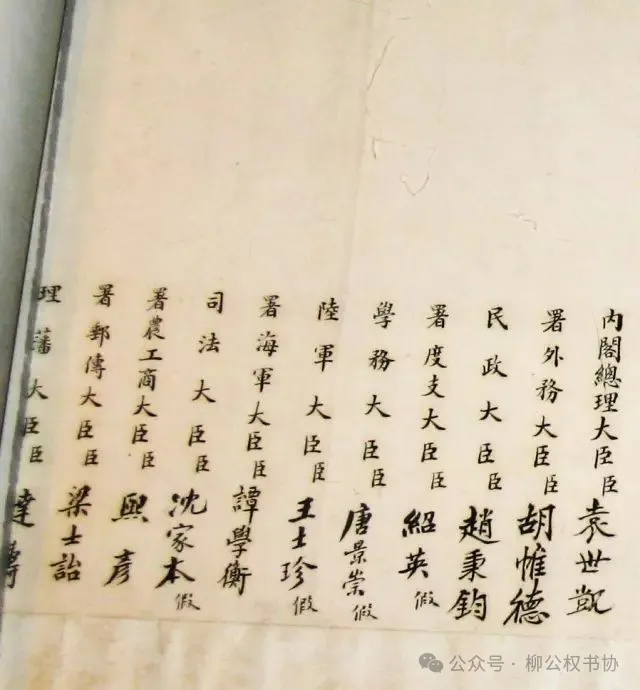 內閣總理大臣臣袁世凱
署外務大臣臣胡惟德
民政大臣臣趙秉鈞
署度支大臣臣紹英假
學務大臣臣唐景崇假
陸軍大臣臣王士珍假
署海軍大臣臣譚學衡
司法大臣臣沈家本假
署農工商大臣臣熙彥
署郵傳大臣臣梁士詒
理藩大臣臣達壽
公众号·柳公权书协